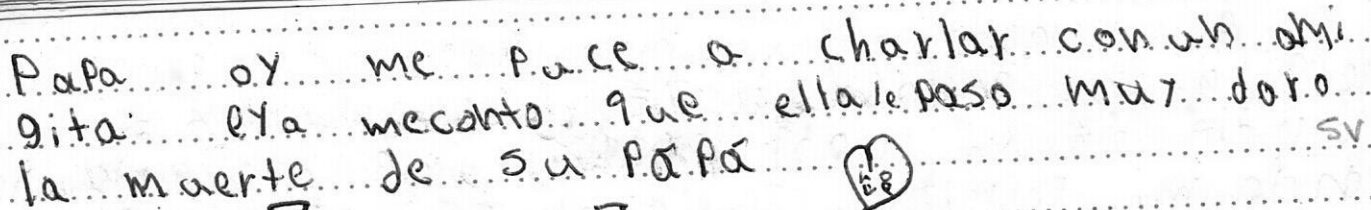 Papa oy me puce a charlar con un ami
gita: eya meconto que ellale paso muy doro
sv
la muerte de su papá